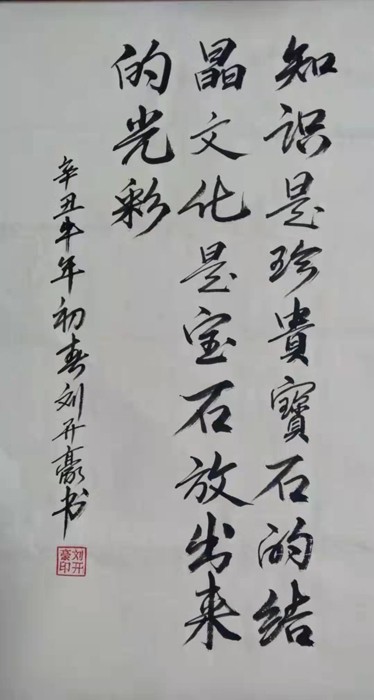 知识是珍貴寶石的结
晶文化是宝石放出来
的光彩
辛丑牛年初春刘开豪书
刘开
豪印